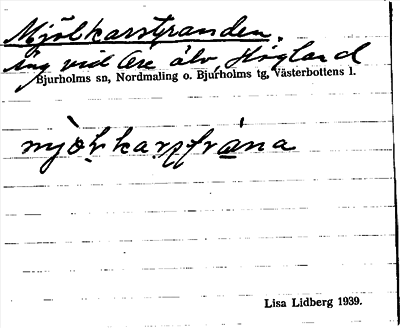 Mjölkarstranden.
Äng vid Öre älv, Högland
Bjurholms sn, Nordmaling o. Bjurholms tg, Västerbottens l.
Lisa Lidberg 1939.